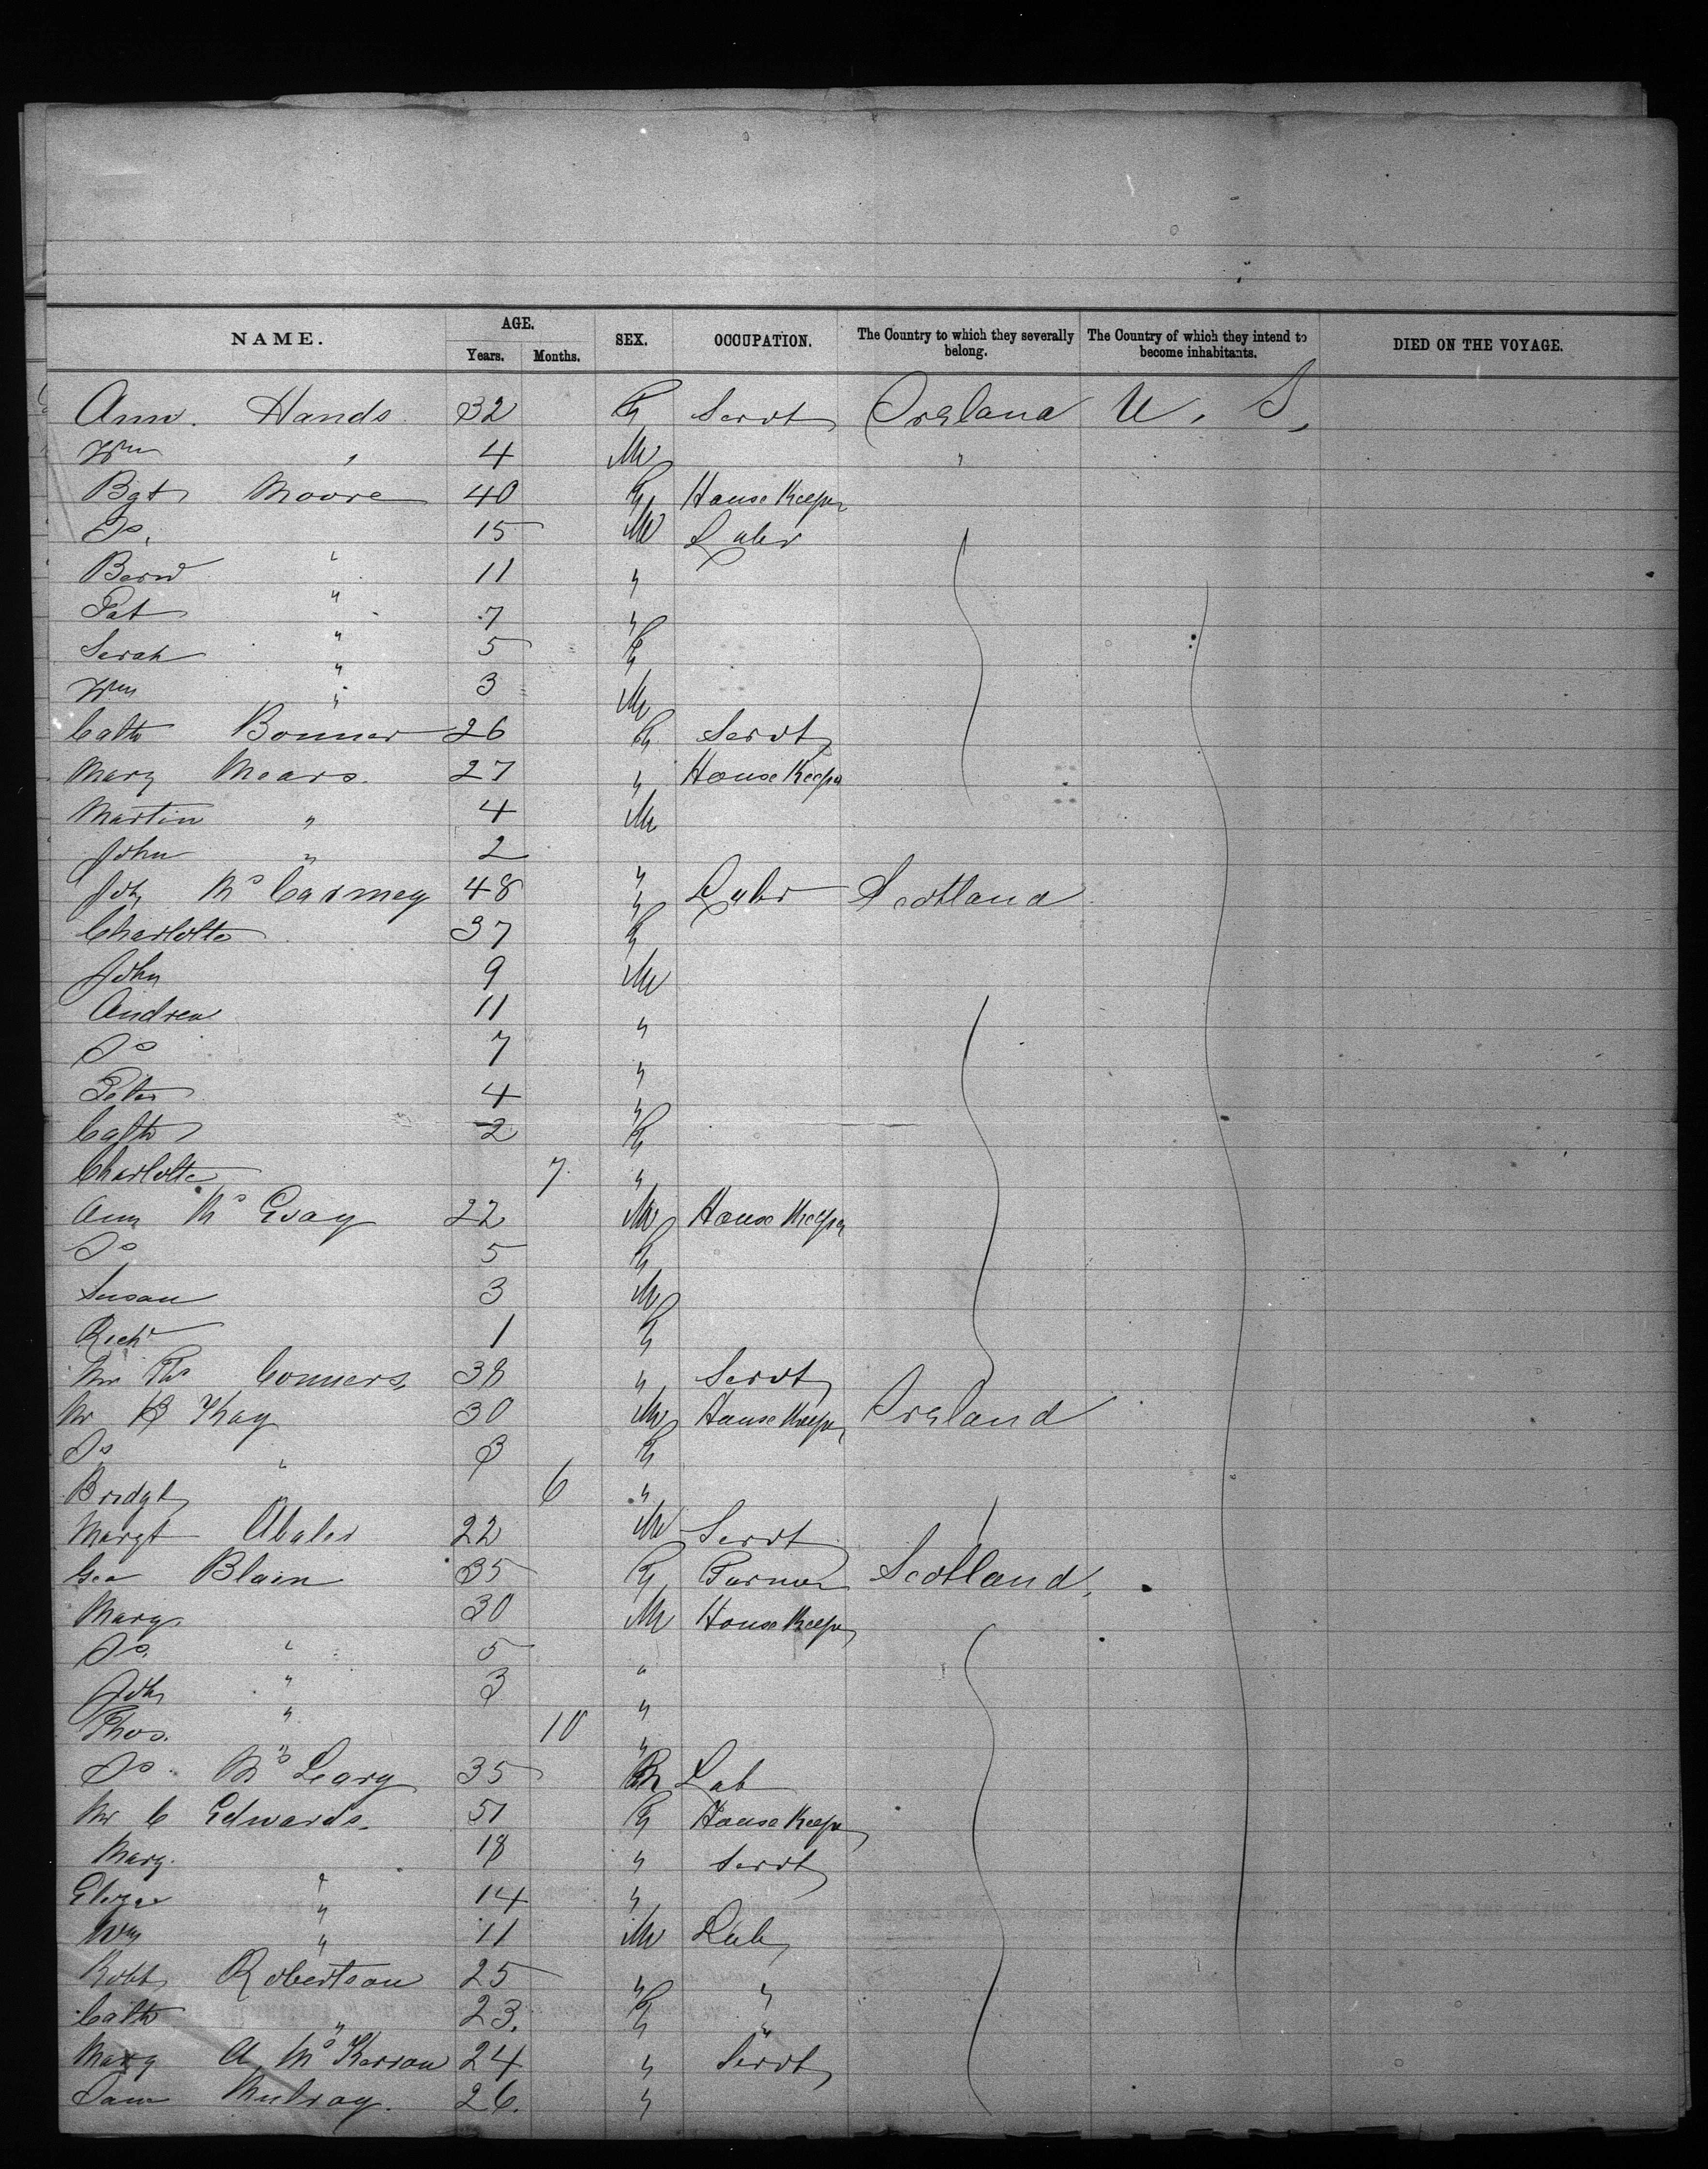 NAME. AGE. Years. Months. SEX. OCCUPATION. The Country to which they severally belong. The Country of which they intend to become inhabitants. DIED ON THE VOYAGE.
Ann. Hands 32 F Servt Ireland U. S,
Wm " 4 M "
Bgt Moore 40 F House Keeper
Js. " 15 M Labr
Bernd " 11 "
Pat " 7 "
Sarah " 5 F
Wm " 3 M
Cath Bonner 26 F Servt
Mary Mears 27 " House Keeper
Martin " 4 M
John " 2 "
Joh Mc Carmey 48 " Labr Scotland
Charlotte 37 F
John 9 M
Andrew 11 "
Js 7 "
Peter 4 "
Cath 2 F
Charlotte 7 "
Ann Mc Evay 22 M House Keeper
Js 5 F
Susan 3 M
Richd 1 F
Mr Ths Conners 38 " Servt
Mr B Kay 30 M House Keeper Ireland
Js " 3 F
Bridgt " 6 "
Margt 22 M Servt
Geo Blain 35 F Farmer Scotland.
Mary 30 M House Keeper
Js. " 5 "
Joh " 3 "
Thos. " 10 "
Js Mc Leary 35 Lab
Mr C Edwards. 51 F House Keeper
Mary. 18 " Servt
Eliza " 14 "
Wm " 11 M Lab
Robt Robertson 25 " "
Cath " 23. F "
Mary A McKerron 24 " Servt
Jam Mulray. 26. "